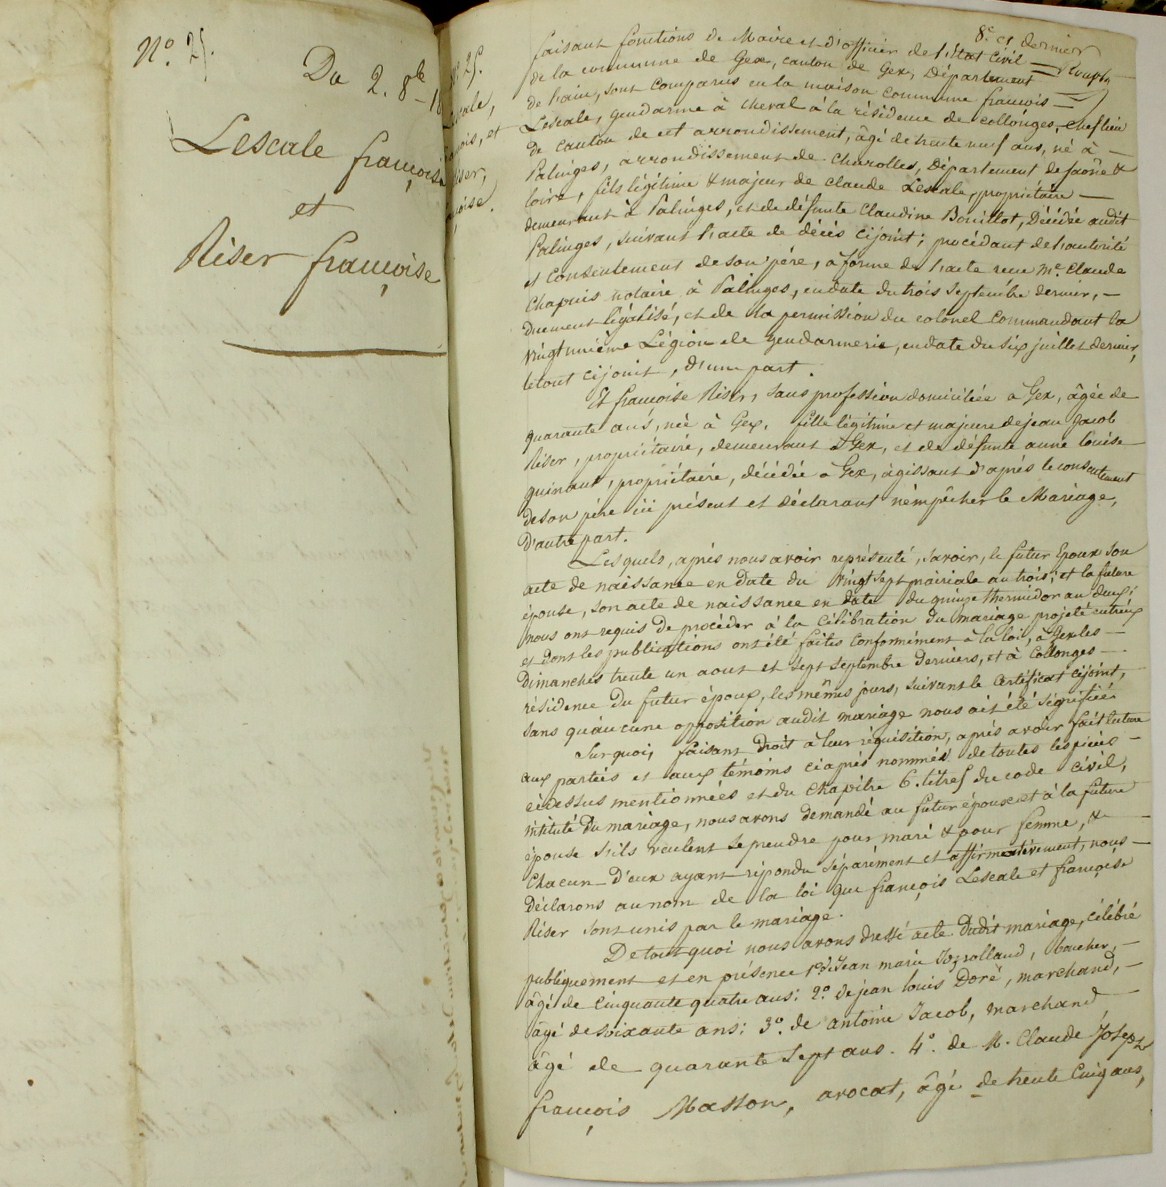 N.º 25.
Du 2. 8.bre 18
Lescale françois
et
Riser françoise
8.e et dernier
faisant fonctions de Maire et d'officier de l'Etat civil
de la commune de Gex, canton de Gex, Département
de l'ain, sont comparus en la maison commune françois
Lescale, gendarme à cheval à la résidence de collonges, chef lieu
de canton de cet arrondissement, âgé de trente neuf ans, né à
Palinges, arrondissement de charolles, Département de saône &
loire, fils légitime & majeur de claude Lescale, propriétaire
demeurant à Palinges, et de défunte Claudine Bouillot, Décédée audit
Palinges, suivant l'acte de décès cijoint; procédant de l'autorité
et Consentement de son père, à forme de l'acte reçu Me. Claude
Chapuis notaire à Palinges, en date du trois septembre dernier,
duement légalisé, et de la permission du colonel commandant la
vingt unième Légion de gendarmerie, en date du six juillet dernier,
le tout cijoint, d'une part.
Et françoise Riser, sans profession domiciliée à Gex, âgée de
quarante ans, née à Gex, fille légitime et majeure de jean Jacob
Riser, propriétaire, demeurant à Gex, et de défunte anne Louise
quinaut, propriétaire, décédée à Gex, agissant d'après le consentement
de son père ici présent et déclarant n'empêcher le Mariage,
d'autre part.
Lesquels, après nous avoir représenté, savoir, le futur Epoux son
acte de naissance en date du vingt sept prairiale an trois; et la future
épouse, son acte de naissance en date du quinze thermidor an deux;
nous ont requis de procéder à la célébration du mariage projeté entreux
et dont les publications ont été faites conformément à la loi, à Gex les
Dimanches trente un aout et sept septembre derniers, et à Collonges
résidence du futur époux, les mêmes jours, suivant le Certificat cijoint,
sans qu'aucune opposition audit mariage nous ait été signifiée.
Sur quoi, faisant droit à leur réquisition, après avoir fait lecture
aux parties et aux témoins ciaprès nommés de toutes les pièces
cidessus mentionnées et du chapitre 6. titre 5 du code civil,
intitulé Du mariage, nous avons demandé au futur époux et à la future
épouse s'ils veulent se prendre pour mari & pour femme, &
chacun d'eux ayant répondu séparément et affirmativement, nous
Déclarons au nom de la loi que françois Lescale et françoise
Riser sont unis par le mariage.
De tout quoi nous avons dressé acte dudit mariage, célébré
publiquement et en présence 1.º de Jean marie, boucher,
âgé de cinquante quatre ans; 2.º de jean louis Doré, marchand,
âgé de soixante ans; 3.º de antoine Jacob, marchand
âgé de quarante sept ans. 4.º de M. Claude Joseph
françois Masson, avocat, âgé de trente cinq ans,